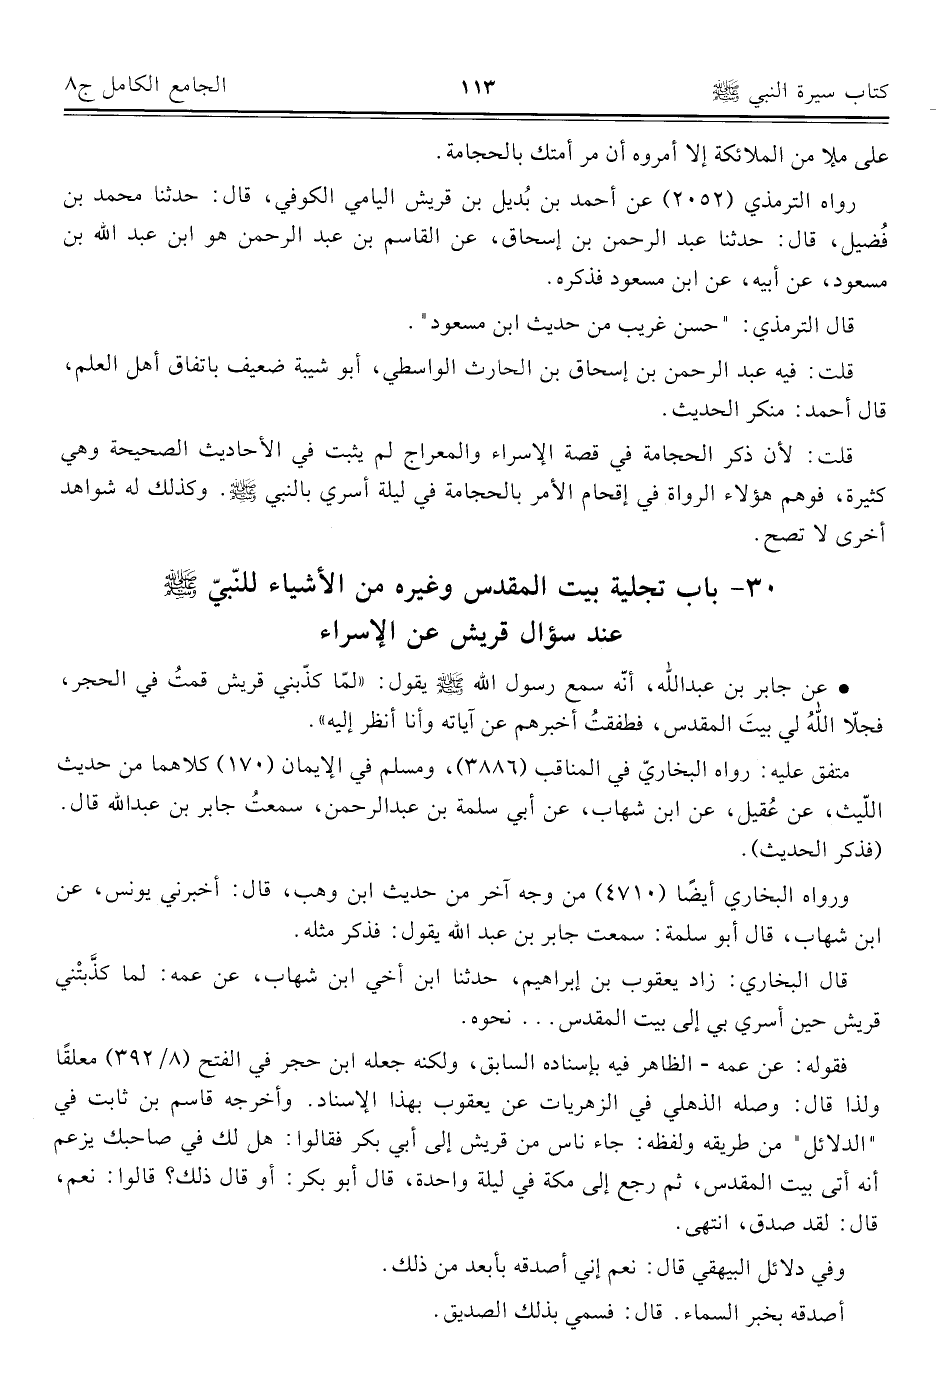 كتاب سيرة النبي ﷺ ١١٣ الجامع الكامل ج٨
على ملإ من الملائكة إلا أمروه أن مر أمتك بالحجامة.
رواه الترمذي (٢٠٥٢) عن أحمد بن بُديل بن قريش اليامي الكوفي، قال: حدثنا محمد بن
فُضيل، قال: حدثنا عبد الرحمن بن إسحاق، عن القاسم بن عبد الرحمن هو ابن عبد الله بن
مسعود، عن أبيه، عن ابن مسعود فذكره.
قال الترمذي: "حسن غريب من حديث ابن مسعود".
قلت: فيه عبد الرحمن بن إسحاق بن الحارث الواسطي، أبو شيبة ضعيف باتفاق أهل العلم،
قال أحمد: منكر الحديث.
قلت: لأن ذكر الحجامة في قصة الإسراء والمعراج لم يثبت في الأحاديث الصحيحة وهي
كثيرة، فوهم هؤلاء الرواة في إقحام الأمر بالحجامة في ليلة أسري بالنبي ﷺ. وكذلك له شواهد
أخرى لا تصح.
٣٠- باب تجلية بيت المقدس وغيره من الأشياء للنّبيّ ﷺ
عند سؤال قريش عن الإسراء
• عن جابر بن عبدالله، أنّه سمع رسول الله ﷺ يقول: «لمّا كذّبني قريش قمتُ في الحجر،
فجلّا اللهُ لي بيتَ المقدس، فطفقتُ أخبرهم عن آياته وأنا أنظر إليه».
متفق عليه: رواه البخاريّ في المناقب (٣٨٨٦)، ومسلم في الإيمان (١٧٠) كلاهما من حديث
اللّيث، عن عُقيل، عن ابن شهاب، عن أبي سلمة بن عبدالرحمن، سمعتُ جابر بن عبدالله قال.
(فذكر الحديث).
ورواه البخاري أيضًا (٤٧١٠) من وجه آخر من حديث ابن وهب، قال: أخبرني يونس، عن
ابن شهاب، قال أبو سلمة: سمعت جابر بن عبد الله يقول: فذكر مثله.
قال البخاري: زاد يعقوب بن إبراهيم، حدثنا ابن أخي ابن شهاب، عن عمه: لما كذَّبتْني
قريش حين أسري بي إلى بيت المقدس... نحوه.
فقوله: عن عمه - الظاهر فيه بإسناده السابق، ولكنه جعله ابن حجر في الفتح (٨/ ٣٩٢) معلقًا
ولذا قال: وصله الذهلي في الزهريات عن يعقوب بهذا الإسناد. وأخرجه قاسم بن ثابت في
"الدلائل" من طريقه ولفظه: جاء ناس من قريش إلى أبي بكر فقالوا: هل لك في صاحبك يزعم
أنه أتى بيت المقدس، ثم رجع إلى مكة في ليلة واحدة، قال أبو بكر: أو قال ذلك؟ قالوا: نعم،
قال: لقد صدق، انتهى.
وفي دلائل البيهقي قال: نعم إني أصدقه بأبعد من ذلك.
أصدقه بخبر السماء. قال: فسمي بذلك الصديق.